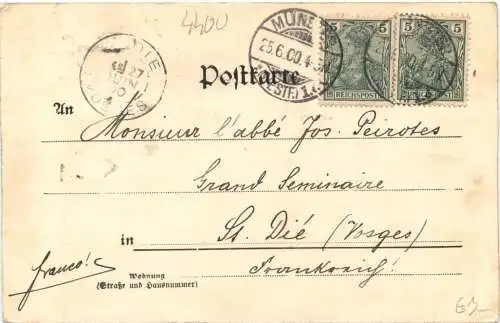 4400
5 5 5 5
REICHSPOST REICHSPOST
25.6.00
27
Postkarte
An
Monsieur l'abbé Jos. Peirotes
Grand Seminaire
in St. Dié (Vosges)
Frankreich!
franco!
Wohnung
(Straße und Hausnummer)